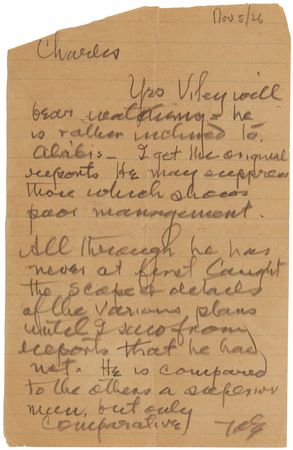 Nov 5/26
Charles
Yes Viley will
bear watching = he
is rather inclined to
alabis - I get the original
reports He may suppress
those which shows
poor management.
All through he has
never at first Caught
the scope & details
of the various plans
until I saw from
reports that he had
not. He is compared
to the others a superior
man, but only
Comparative